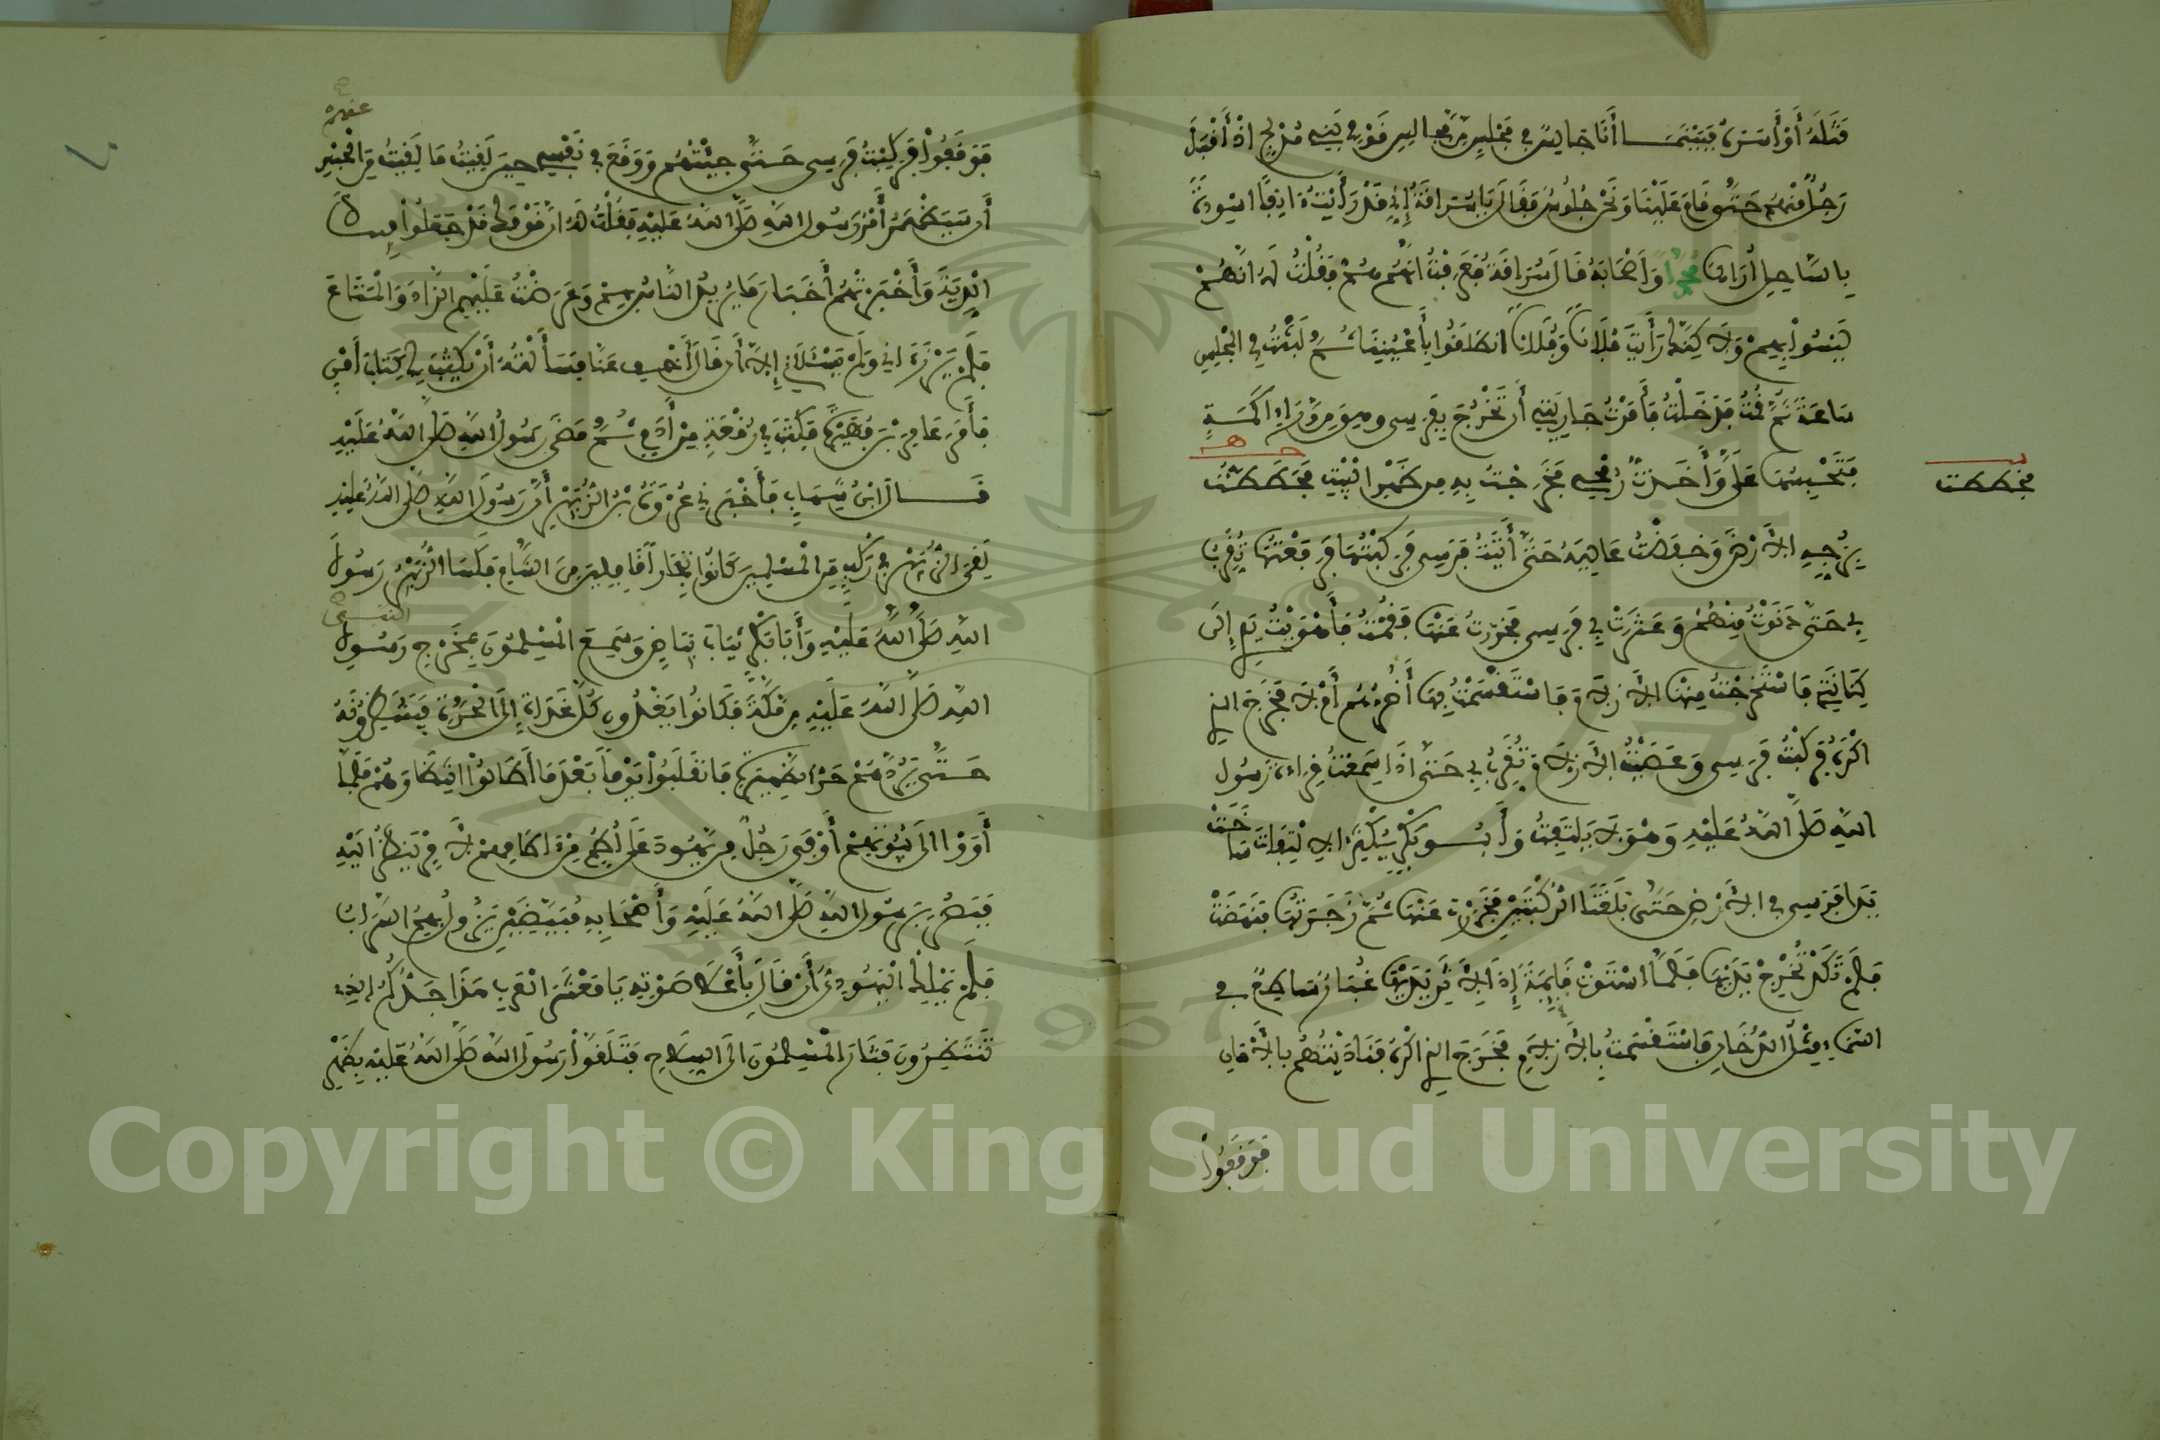 قَتَلَهُ أَوْ أَسَرَهُ فَبَيْنَمَا أَنَا جَالِسٌ فِي مَجْلِسٍ مِّن مَّجَالِسِ قَوْمِي بَنِي مُدْلِجٍ إِذْ أَقْبَلَ
رَجُلٌ مِّنْهُمْ حَتَّى قَامَ عَلَيْنَا وَنَحْنُ جُلُوسٌ فَقَالَ يَا سُرَاقَةُ إِنِّي قَدْ رَأَيْتُ ءَانِفًا أَسْوِدَةً
بِالسَّاحِلِ أُرَاهَا مُحَمَّدًا وَأَصْحَابَهُ قَالَ سُرَاقَةُ فَعَرَفْتُ أَنَّهُمْ هُمْ فَقُلْتُ لَهُ إِنَّهُمْ
لَيْسُوا بِهِمْ وَلَاكِنَّكَ رَأَيْتَ فُلَانًا وَفُلَانًا انْطَلَقُوا بِأَعْيُنِنَا ثُمَّ لَبِثْتُ فِي الْمَجْلِسِ
سَاعَةً ثُمَّ قُمْتُ فَدَخَلْتُ فَأَمَرْتُ جَارِيَتِي أَن تَخْرُجَ بِفَرَسِي وَهِيَ مِن وَّرَاءِ أَكَمَةٍ
فَتَحْبِسَهَا عَلَيَّ وَأَخَذتُّ رُمْحِي فَخَرَجْتُ بِهِ مِن ظَهْرِ الْبَيْتِ فَخَطَطْتُ
فخططت
بِزُجِّهِ الْأَرْضَ وَخَفَضْتُ عَالِيَهُ حَتَّى أَتَيْتُ فَرَسِي فَرَكِبْتُهَا فَرَفَعْتُهَا تُقَرِّبُ
بِي حَتَّى دَنَوْتُ مِنْهُمْ وَعَثَرَتْ بِي فَرَسِي فَخَرَرْتُ عَنْهَا فَقُمْتُ فَأَهْوَيْتُ يَدِي إِلَى
كِنَانَتِي فَاسْتَخْرَجْتُ مِنْهَا الْأَزْلَامَ فَاسْتَقْسَمْتُ بِهَا أَضُرُّهُمْ أَمْ لَا فَخَرَجَ الذِي
أَكْرَهُ فَرَكِبْتُ فَرَسِي وَعَصَيْتُ الْأَزْلَامَ تُقَرِّبُ بِي حَتَّى إِذَا سَمِعْتُ قِرَاءَةَ رَسُولِ
اللَّهِ صَلَّى اللَّهُ عَلَيْهِ وَهُوَ لَا يَلْتَفِتُ وَأَبُو بَكْرٍ يُكْثِرُ الِالْتِفَاتَ سَاخَتْ
يَدَا فَرَسِي فِي الْأَرْضِ حَتَّى بَلَغَتَا الرُّكْبَتَيْنِ فَخَرَرْتُ عَنْهَا ثُمَّ زَجَرْتُهَا فَنَهَضَتْ
فَلَمْ تَكَدْ تُخْرِجُ يَدَيْهَا فَلَمَّا اسْتَوَتْ قَائِمَةً إِذَا لِأَثَرِ يَدَيْهَا غُبَارٌ سَاطِعٌ فِي
السَّمَاءِ مِثْلُ الدُّخَانِ فَاسْتَقْسَمْتُ بِالْأَزْلَامِ فَخَرَجَ الذِي أَكْرَهُ فَنَادَيْتُهُم بِالْأَمَانِ
فَوَقَفُوا
فَوَقَفُوا فَرَكِبْتُ فَرَسِي حَتَّى جِئْتُهُمْ وَوَقَعَ فِي نَفْسِي حِينَ لَقِيتُ مَا لَقِيتُ مِنَ الْحَبْسِ
عنهم
أَن سَيَظْهَرُ أَمْرُ رَسُولِ اللَّهِ صَلَّى اللَّهُ عَلَيْهِ فَقُلْتُ لَهُ إِنَّ قَوْمَكَ قَدْ جَعَلُوا فِيكَ
الدِّيَةَ وَأَخْبَرْتُهُمْ أَخْبَارَ مَا يُرِيدُ النَّاسُ بِهِمْ وَعَرَضْتُ عَلَيْهِمِ الزَّادَ وَالْمَتَاعَ
فَلَمْ يَرْزَءَانِي وَلَمْ يَسْئَلَانِي إِلَّا أَن قَالَ أَخْفِ عَنَّا فَسَأَلْتُهُ أَنْ يَكْتُبَ لِي كِتَابَ أَمْنٍ
فَأَمَرَ عَامِرَ بْنَ فُهَيْرَةَ فَكَتَبَ فِي رُقْعَةٍ مِنْ أَدِيمٍ ثُمَّ مَضَى رَسُولُ اللَّهِ صَلَّى اللَّهُ عَلَيْهِ
قَالَ ابْنُ شِهَابٍ فَأَخْبَرَنِي عُرْوَةُ بْنُ الزُّبَيْرِ أَنَّ رَسُولَ اللَّهِ صَلَّى اللَّهُ عَلَيْهِ
لَقِيَ الزُّبَيْرَ فِي رَكْبٍ مِنَ الْمُسْلِمِينَ كَانُوا تِجَارًا قَافِلِينَ مِنَ الشَّامِ فَكَسَا الزُّبَيْرُ رَسُولَ
اللَّهِ صَلَّى اللَّهُ عَلَيْهِ وَأَبَا بَكْرٍ ثِيَابَ بَيَاضٍ وَسَمِعَ الْمُسْلِمُونَ بِمَخْرَجِ رَسُولِ
اللَّهِ صَلَّى اللَّهُ عَلَيْهِ مِن مَكَّةَ فَكَانُوا يَغْدُونَ كُلَّ غَدَاةٍ إِلَى الْحَرَّةِ فَيَنْتَظِرُونَهُ
حَتَّى يَرُدَّهُمْ حَرُّ الظَّهِيرَةِ فَانْقَلَبُوا يَوْمًا بَعْدَ مَا أَطَالُوا انْتِظَارَهُمْ فَلَمَّا
أَوَوْا إِلَى بُيُوتِهِمْ أَوْفَى رَجُلٌ مِن يَهُودَ عَلَى أُطُمٍ مِنْ ءَاطَامِهِمْ لِأَمْرٍ يَنْظُرُ إِلَيْهِ
فَبَصُرَ بِرَسُولِ اللَّهِ صَلَّى اللَّهُ عَلَيْهِ وَأَصْحَابِهِ مُبَيَّضِينَ يَزُولُ بِهِمُ السَّرَابُ
فَلَمْ يَمْلِكِ الْيَهُودِيُّ أَنْ قَالَ بِأَعْلَا صَوْتِهِ يَا مَعْشَرَ الْعَرَبِ هَذَا جَدُّكُمُ الذِي
تَنْتَظِرُونَ فَثَارَ الْمُسْلِمُونَ إِلَى السِّلَاحِ فَتَلَقَّوْا رَسُولَ اللَّهِ صَلَّى اللَّهُ عَلَيْهِ بِظَهْرِ
Copyright © King Saud University
1957